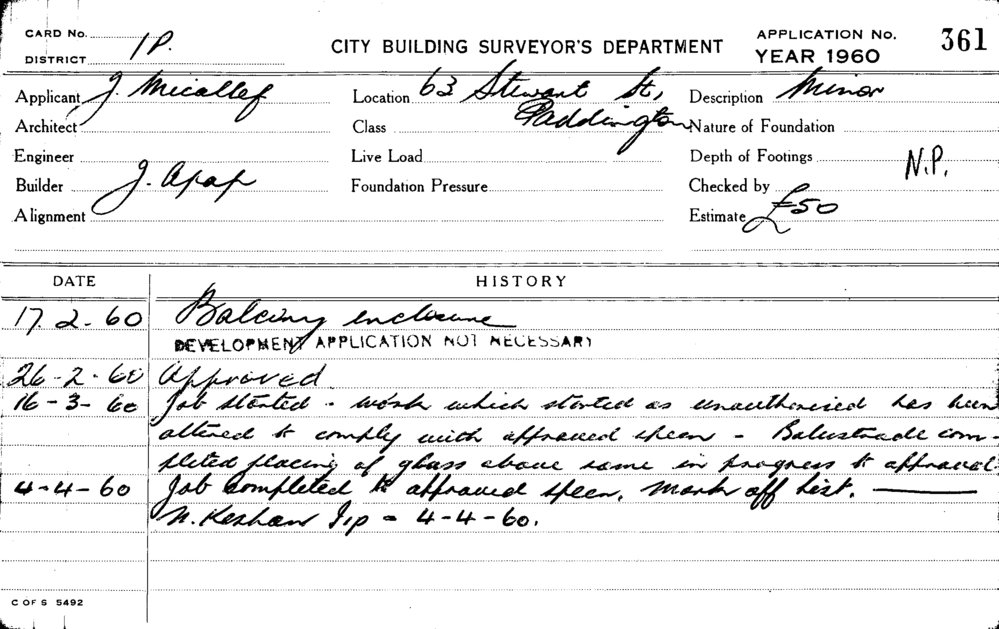 CARD No.
DISTRICT 1P.
CITY BUILDING SURVEYOR'S DEPARTMENT
APPLICATION No. 361
YEAR 1960
Applicant J. Micallef
Location 63 Stewart St,
Paddington
Description Minor
Architect
Class
Nature of Foundation
Engineer
Live Load
Depth of Footings N.P.
Builder J. Apap
Foundation Pressure
Checked by
Alignment
Estimate £50
DATE HISTORY
17.2.60 Balcony enclosure
DEVELOPMENT APPLICATION NOT NECESSARY
26-2-60 Approved
16-3-60 Job started - work which started as unauthorised has been
altered to comply with approved specn - Balustrade com-
pleted placing of glass above same in progress to approval
4-4-60 Job completed to approved specn. Mark off list.
N. Keshan 4-4-60.
C OF S 5492